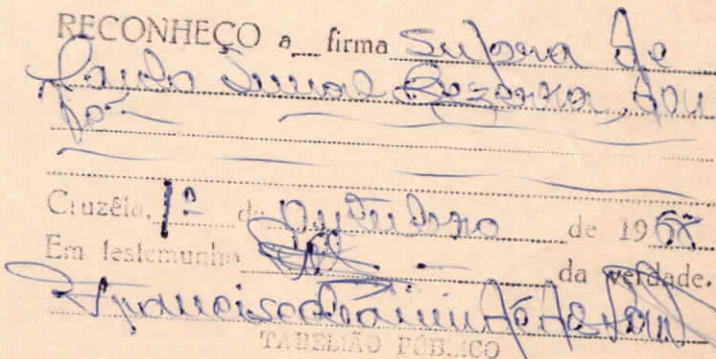 RECONHEÇO a firma supra de
Paulo Bezerra, dou
fé
Cruzêta, 1º de Outubro de 19
Em testemunho da verdade.
Francisco
TABELIÃO PÚBLICO